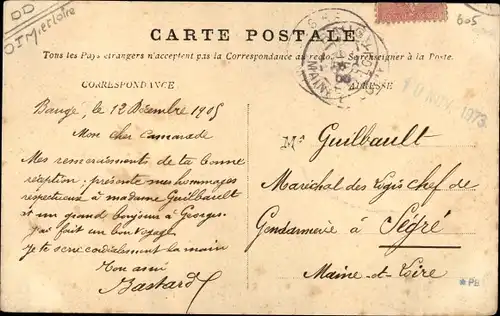 DD
605
CARTE POSTALE
Tous les Pays étrangers n'acceptent pas la Correspondance au recto. Se renseigner à la Poste.
CORRESPONDANCE
ADRESSE
10 NOV. 1973
Baugé, le 12 Décembre 1905
Mon cher camarade
Mes remerciements de ta bonne
réception, présente mes hommages
respectueux à madame Guilbault
et un grand bonjour à Georges.
J'ai fait un bon voyage
Je te serre cordialement la main
Ton ami
Bastard
Mr Guilbault
Maréchal des Logis chef de
Gendarmerie à Ségré
Maine-et-Loire
*PB